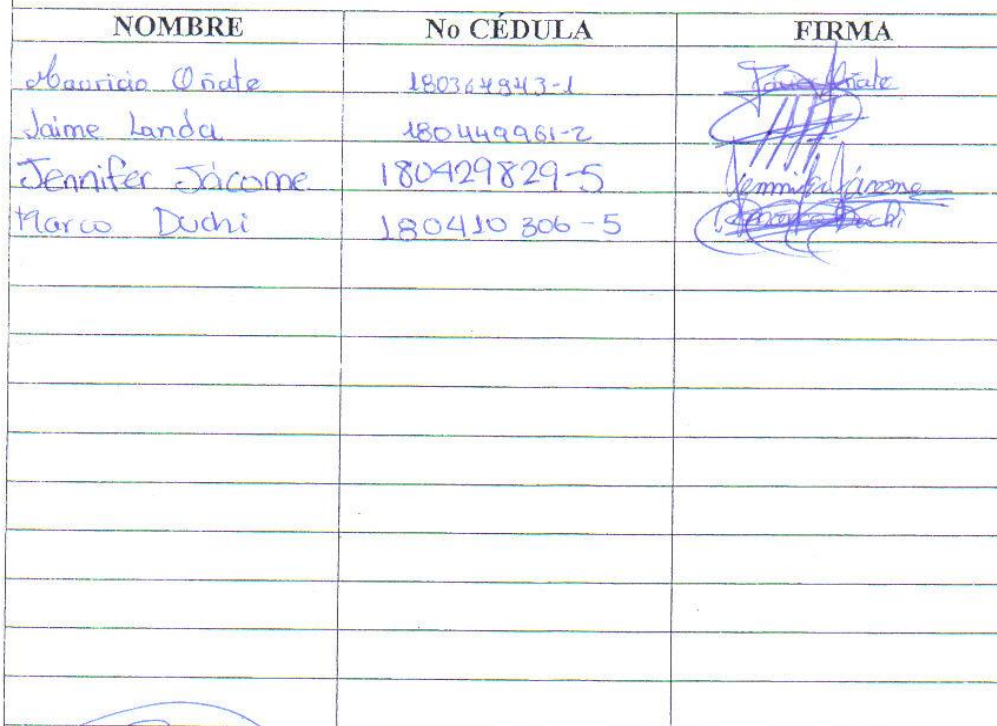 NOMBRE No CÉDULA FIRMA
Mauricio Oñate 180364943-1 Oñate
Jaime Landa 180449961-2
Jennifer Jácome 180429829-5 Jennifer Jácome
Marco Duchi 180410306-5 Marco Duchi